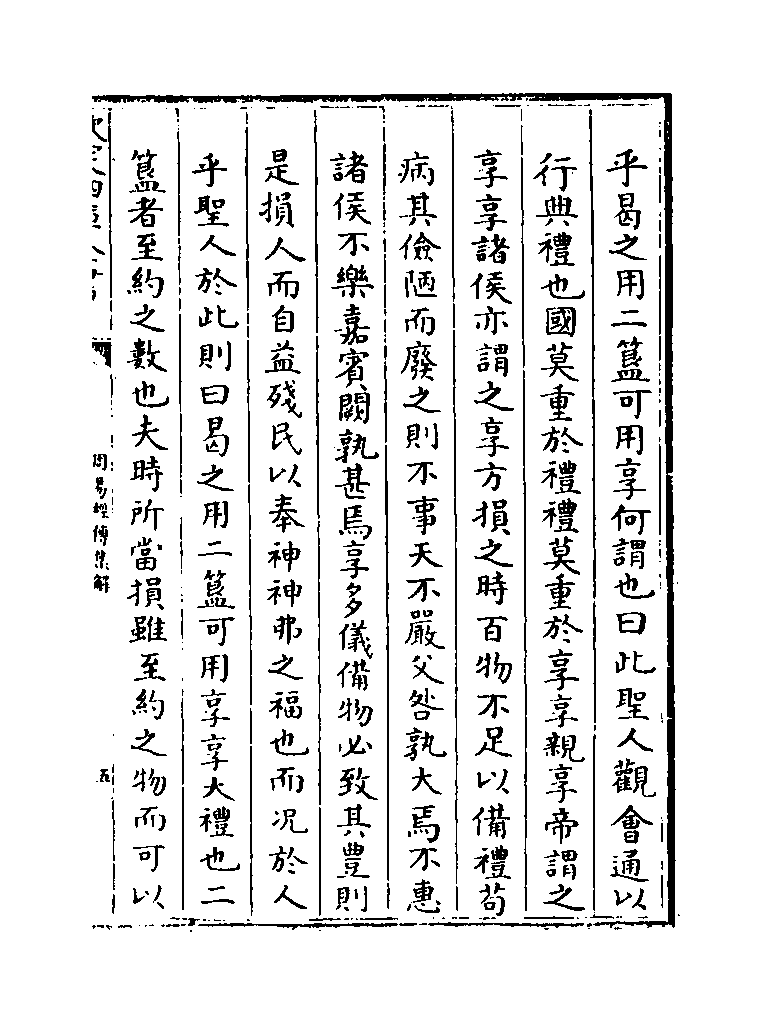 乎曷之用二簋可用享何謂也曰此聖人觀會通以
行典禮也國莫重於禮禮莫重於享享親享帝謂之
享享諸侯亦謂之享方損之時百物不足以備禮苟
病其儉陋而廢之則不事天不嚴父咎孰大焉不惠
諸侯不樂嘉賓闕孰甚焉享多儀備物必致其豊則
是損人而自益殘民以奉神神弗之福也而况於人
乎聖人於此則曰曷之用二簋可用享享大禮也二
簋者至約之數也夫時所當損雖至約之物而可以
周易經傳集解
五